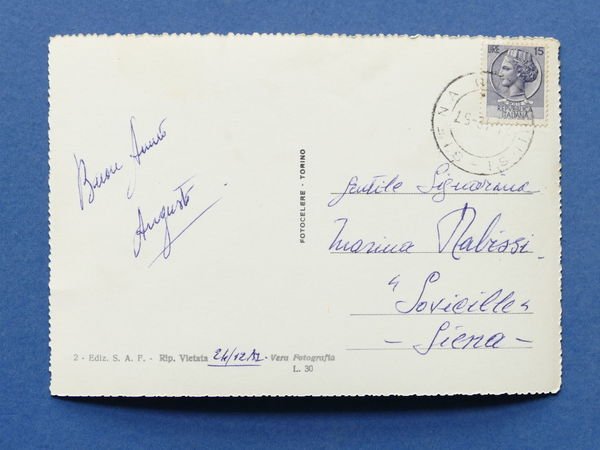 LIRE 15
REPUBBLICA
ITALIANA
SIENA
Buon Anno
Augusto
FOTOCELERE - TORINO
Gentile Signorina
Marina Nabissi
"Sovicille"
- Siena -
2 - Ediz. S. A. F. - Rip. Vietata - Vera Fotografia
L. 30